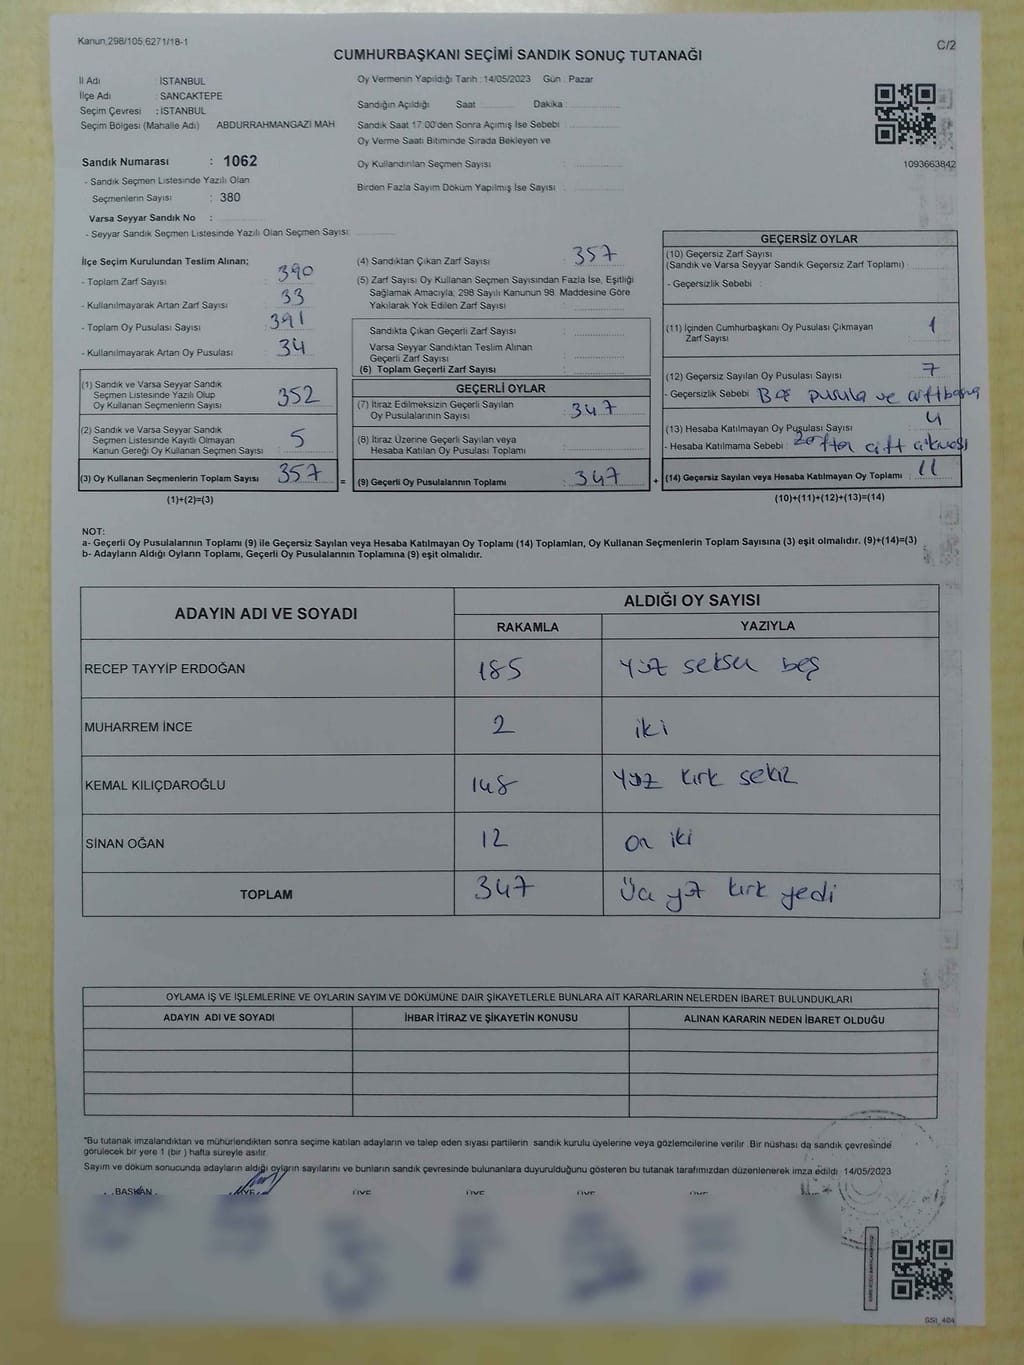 Kanun,298/105,6271/18-1
C/2
CUMHURBAŞKANI SEÇİMİ SANDIK SONUÇ TUTANAĞI
İl Adı İSTANBUL
İlçe Adı : SANCAKTEPE
Seçim Çevresi : İSTANBUL
Seçim Bölgesi (Mahalle Adı) ABDURRAHMANGAZİ MAH
Oy Vermenin Yapıldığı Tarih : 14/05/2023 Gün : Pazar
Sandığın Açıldığı Saat : Dakika :
Sandık Saat 17:00'den Sonra Açımış İse Sebebi :
Oy Verme Saati Bitiminde Sırada Bekleyen ve
Oy Kullandırılan Seçmen Sayısı :
Birden Fazla Sayım Döküm Yapılmış İse Sayısı :
1093663842
Sandık Numarası : 1062
- Sandık Seçmen Listesinde Yazılı Olan
Seçmenlerin Sayısı : 380
Varsa Seyyar Sandık No :
- Seyyar Sandık Seçmen Listesinde Yazılı Olan Seçmen Sayısı:
İlçe Seçim Kurulundan Teslim Alınan;
- Toplam Zarf Sayısı : 390
- Kullanılmayarak Artan Zarf Sayısı : 33
- Toplam Oy Pusulası Sayısı : 391
- Kullanılmayarak Artan Oy Pusulası : 34
(1) Sandık ve Varsa Seyyar Sandık
Seçmen Listesinde Yazılı Olup
Oy Kullanan Seçmenlerin Sayısı : 352
(2) Sandık ve Varsa Seyyar Sandık
Seçmen Listesinde Kayıtlı Olmayan
Kanun Gereği Oy Kullanan Seçmen Sayısı : 5
(3) Oy Kullanan Seçmenlerin Toplam Sayısı : 357 =
(1)+(2)=(3)
(4) Sandıktan Çıkan Zarf Sayısı : 357
(5) Zarf Sayısı Oy Kullanan Seçmen Sayısından Fazla İse, Eşitliği
Sağlamak Amacıyla, 298 Sayılı Kanunun 98. Maddesine Göre
Yakılarak Yok Edilen Zarf Sayısı :
Sandıkta Çıkan Geçerli Zarf Sayısı :
Varsa Seyyar Sandıktan Teslim Alınan
Geçerli Zarf Sayısı :
(6) Toplam Geçerli Zarf Sayısı :
GEÇERLİ OYLAR
(7) İtiraz Edilmeksizin Geçerli Sayılan
Oy Pusulalarının Sayısı : 347
(8) İtiraz Üzerine Geçerli Sayılan veya
Hesaba Katılan Oy Pusulaları Toplamı :
(9) Geçerli Oy Pusulalarının Toplamı : 347 +
GEÇERSİZ OYLAR
(10) Geçersiz Zarf Sayısı
(Sandık ve Varsa Seyyar Sandık Geçersiz Zarf Toplamı) :
- Geçersizlik Sebebi :
(11) İçinden Cumhurbaşkanı Oy Pusulası Çıkmayan
Zarf Sayısı : 1
(12) Geçersiz Sayılan Oy Pusulası Sayısı : 7
- Geçersizlik Sebebi : Boş pusula ve çift basma
(13) Hesaba Katılmayan Oy Pusulası Sayısı : 4
- Hesaba Katılmama Sebebi : zarftan çift çıkması
(14) Geçersiz Sayılan veya Hesaba Katılmayan Oy Toplamı : 11
(10)+(11)+(12)+(13)=(14)
NOT:
a- Geçerli Oy Pusulalarının Toplamı (9) ile Geçersiz Sayılan veya Hesaba Katılmayan Oy Toplamı (14) Toplamları, Oy Kullanan Seçmenlerin Toplam Sayısına (3) eşit olmalıdır. (9)+(14)=(3)
b- Adayların Aldığı Oyların Toplamı, Geçerli Oy Pusulalarının Toplamına (9) eşit olmalıdır.
ADAYIN ADI VE SOYADI ALDIĞI OY SAYISI
RAKAMLA YAZIYLA
RECEP TAYYİP ERDOĞAN 185 yüz seksen beş
MUHARREM İNCE 2 iki
KEMAL KILIÇDAROĞLU 148 yüz kırk sekiz
SİNAN OĞAN 12 on iki
TOPLAM 347 Üç yüz kırk yedi
OYLAMA İŞ VE İŞLEMLERİNE VE OYLARIN SAYIM VE DÖKÜMÜNE DAİR ŞİKAYETLERLE BUNLARA AİT KARARLARIN NELERDEN İBARET BULUNDUKLARI
ADAYIN ADI VE SOYADI İHBAR İTİRAZ VE ŞİKAYETİN KONUSU ALINAN KARARIN NEDEN İBARET OLDUĞU
*Bu tutanak imzalandıktan ve mühürlendikten sonra seçime katılan adayların ve talep eden siyasi partilerin sandık kurulu üyelerine veya gözlemcilerine verilir. Bir nüshası da sandık çevresinde
görülecek bir yere 1 (bir ) hafta süreyle asılır.
Sayım ve döküm sonucunda adayların aldığı oyların sayılarını ve bunların sandık çevresinde bulunanlara duyurulduğunu gösteren bu tutanak tarafımızdan düzenlenerek imza edildi. 14/05/2023
BAŞKAN ÜYE ÜYE ÜYE ÜYE ÜYE
SSI_404